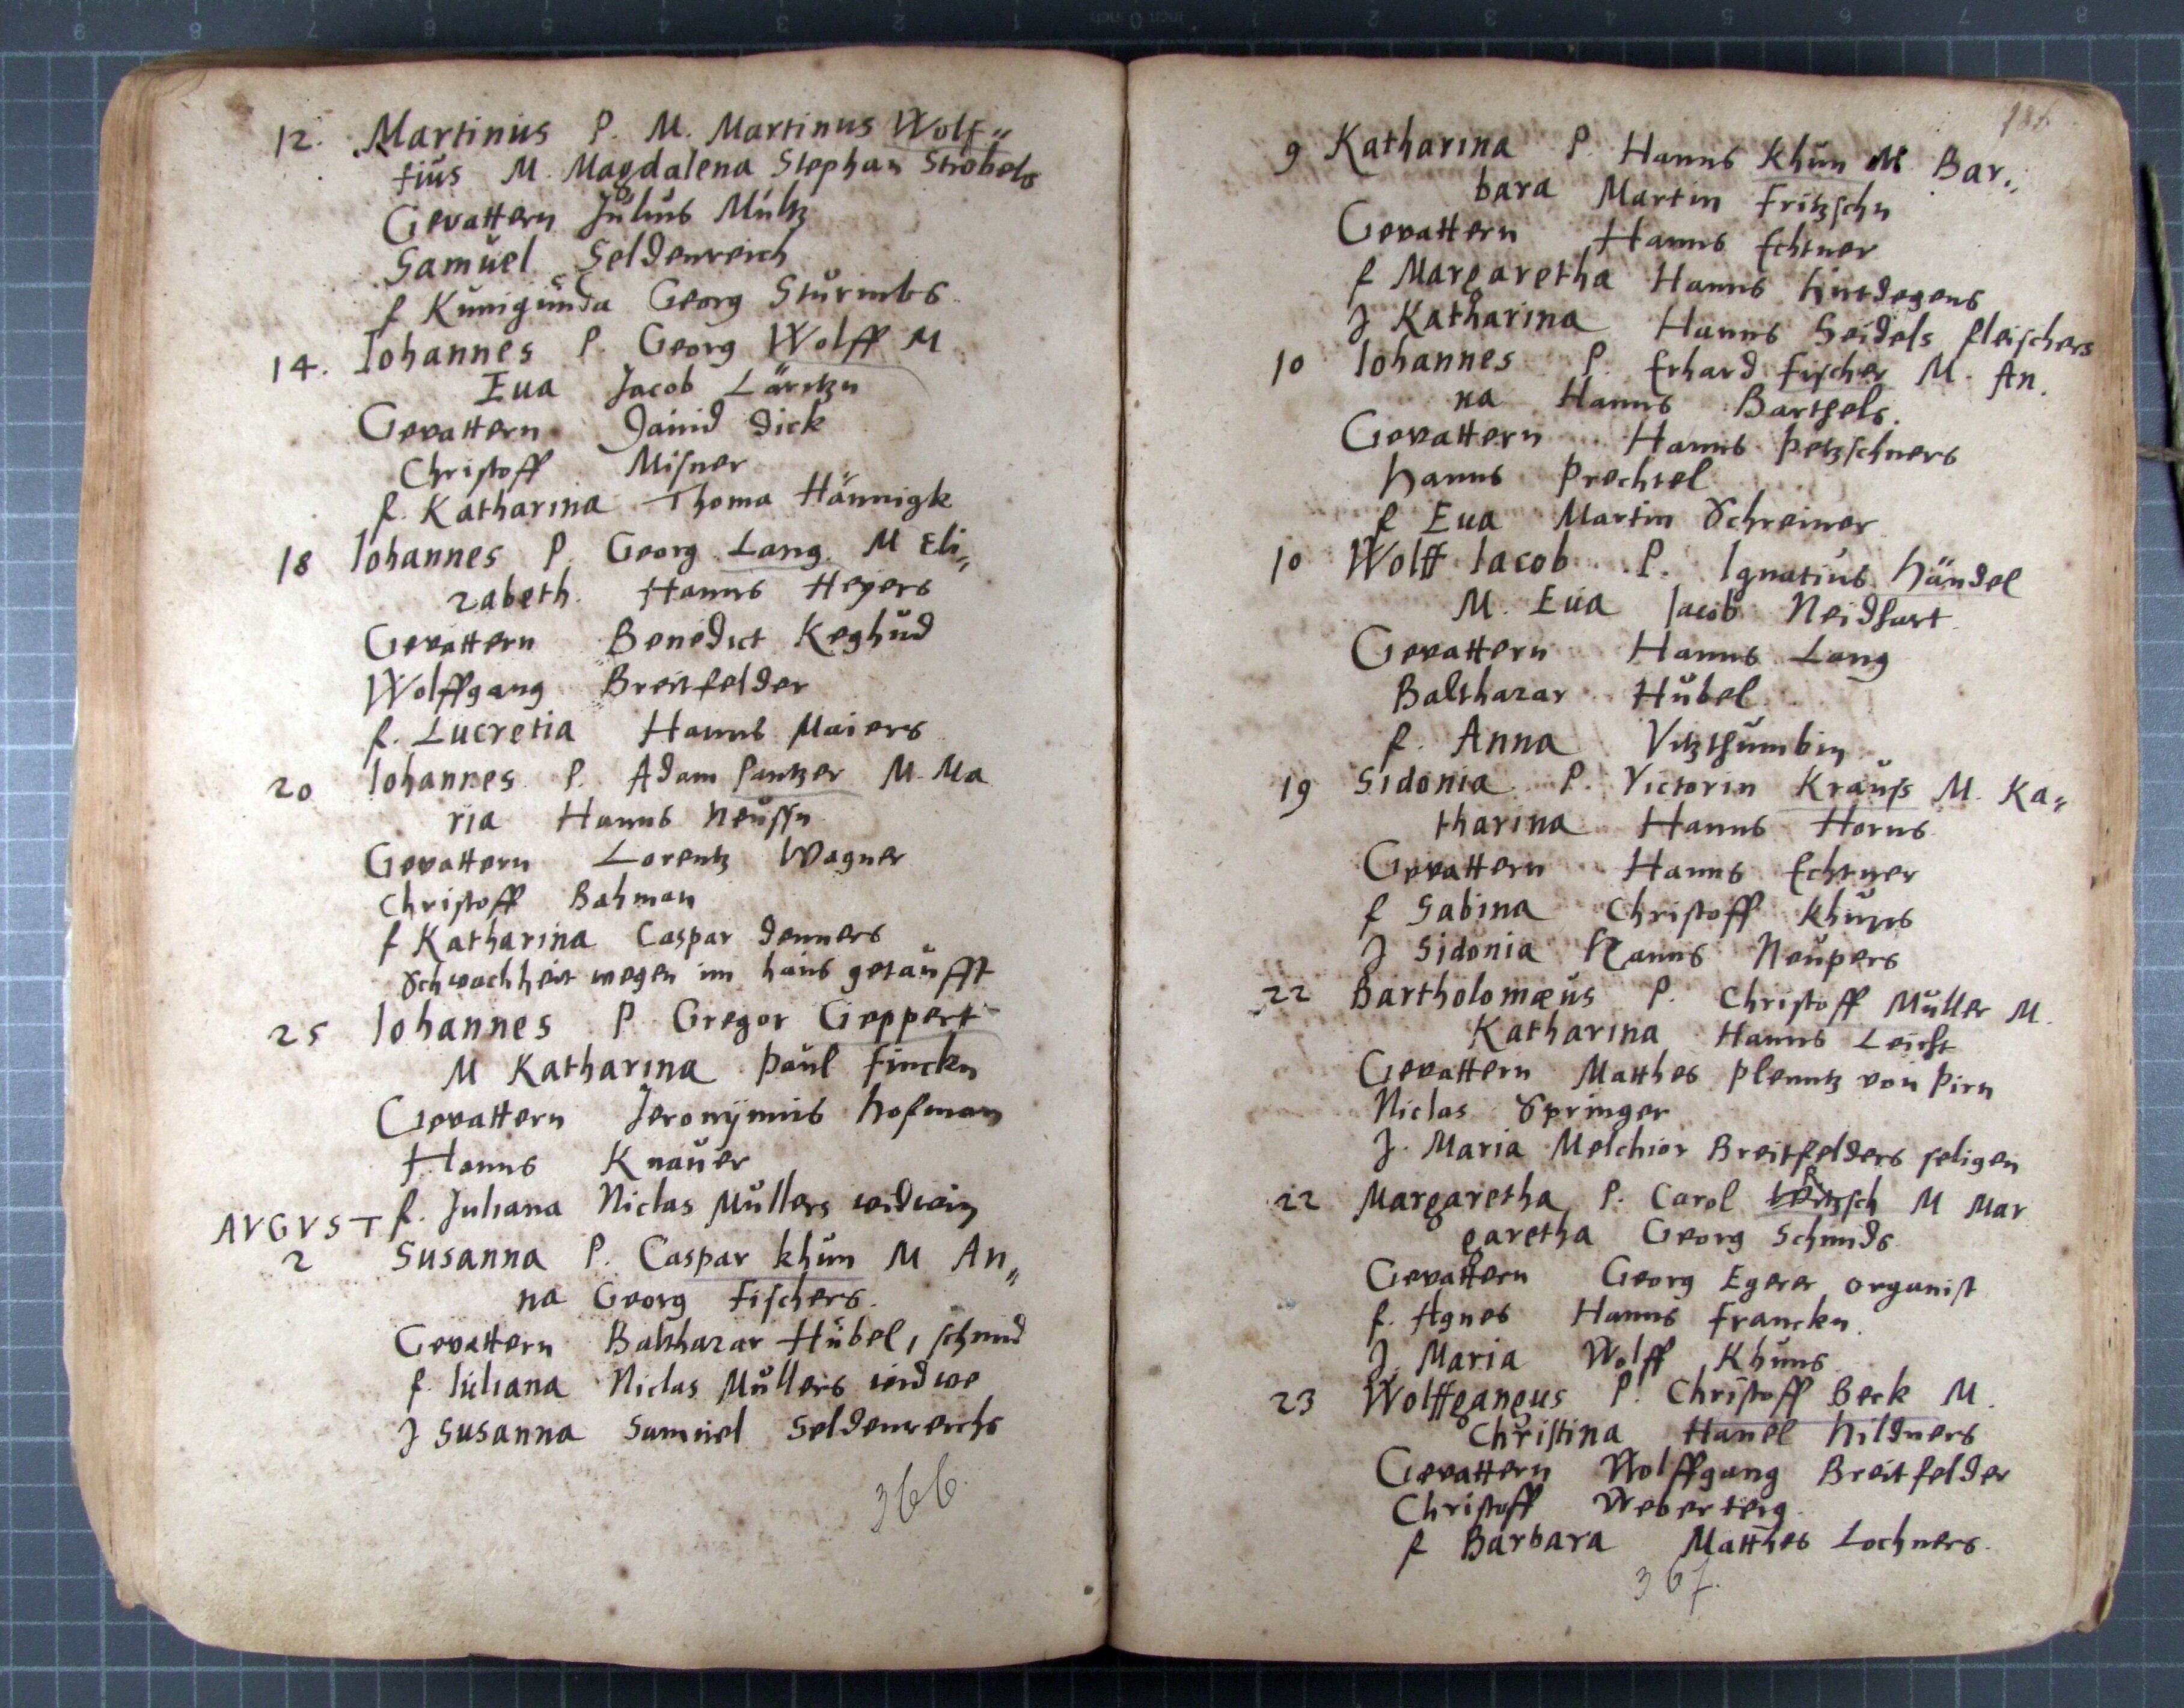 12. Martinus P. M. Martinus Wolf„
fius M. Magdalena Stephan Ströbels
Gevattern Julius Mültz
Samuel Seldenreich
f Kunigunda Georg Sturmbs
14. Iohannes P. Georg Wolff M
Eua Jacob Lärtzn
Gevattern Dauid Dick
Christoff Misner
f. Katharina Thoma Hännigk
18 Iohannes P. Georg Lang M Eli„
zabeth Hanns Heyers
Gevattern Benedict Keghud
Wolffgang Breitfelder
f. Lucretia Hanns Maiers
20 Iohannes P. Adam Pantzer M. Ma
ria Hanns Neussn
Gevattern Lorentz Wagner
Christoff Bahman
f Katharina Caspar Denners
Schwachheit wegen im haus getaufft
25 Iohannes P Gregor Geppert
M Katharina Paul Finckn
Gevattern Jeronymus Hofman
Hanns Knauer
f. Juliana Niclas Mullers widwin
AVGVST
2 Susanna P. Caspar Khun M An„
na Georg Fischers.
Gevattern Balthazar Hübel, schmid
f. Iuliana Niclas Mullers widwe
J Susanna Samuel Seldenreichs
366.
186
9 Katharina P. Hanns Khun M Bar„
bara Martin Fritzschn
Gevattern Hanns Echtner
f Margaretha Hanns Hirtdegens
J Katharina Hanns Seidels fleischers
10 Iohannes P. Erhard Fischer M. An.
na Hanns Barthels.
Gevattern Hanns Petzschners
Hanns Prechtel
f Eua Martin Schreiner
10 Wolff Iacob P. Ignatius Händel
M. Eua Iacob Neidhart
Gevattern Hanns Lang
Balthazar Hübel
f. Anna Vitzthumbin
19 Sidonia P. Victorin Krauss M. Ka„
tharina Hanns Horns
Gevattern Hanns Echtner
f Sabina Christoff Khuns
J Sidonia Hanns Neupers
22 Bartholomæus P. Christoff Muller M.
Katharina Hanns Leicht
Gevattern Matthes Plenntz von Pirn
Niclas Springer
J. Maria Melchior Breitfelders seligen
22 Margaretha P. Carol M Mar
garetha Georg Schmids
Gevattern Georg Egerer organist
f. Agnes Hanns Franckn.
J. Maria Wolff Khuns
23 Wolffgangus P. Christoff Beck M.
Christina Hanel Hildners
Gevattern Wolffgang Breitfelder
Christoff Weberteig
f Barbara Matthes Lochners.
367.